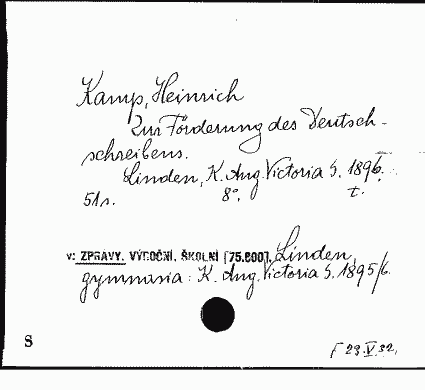 Kamp, Heinrich
Zur Förderung des Deutsch-
schreibens.
Linden, K. Aug. Victoria S. 1896.
51 s. 8°. t.
v: ZPRÁVY. VÝROČNÍ. ŠKOLNÍ [75.600]. Linden,
gymnasia: K. Aug. Victoria S. 1895/6.
8
29.V.32.